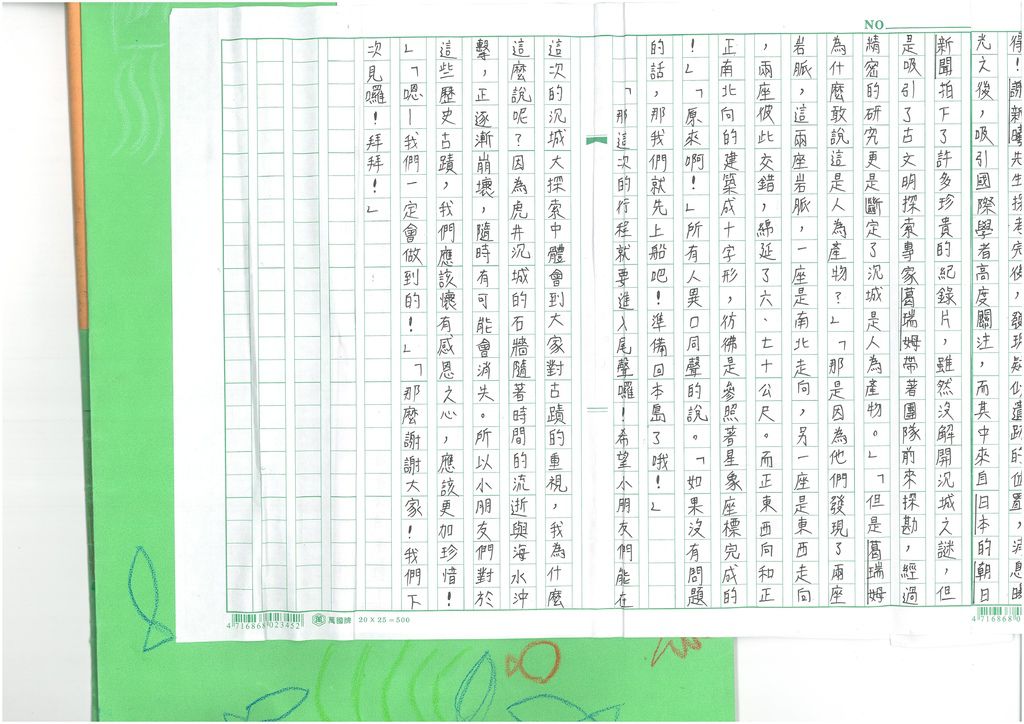 NO
先生探考完後，發現疑似遺跡的位置，消息曝
光之後，吸引國際學者高度關注，而其中來自日本的朝日
新聞拍下了許多珍貴的紀錄片，雖然沒解開沉城之謎，但
是吸引了古文明探索專家葛瑞姆帶著團隊前來探勘，經過
精密的研究更是斷定了沉城是人為產物。」「但是葛瑞姆
為什麼敢說這是人為產物？」「那是因為他們發現了兩座
岩脈，這兩座岩脈，一座是南北走向，另一座是東西走向
，兩座彼此交錯，綿延了六、七十公尺。而正東西向和正
正南北向的建築成十字形，彷彿是參照著星象座標完成的
！」「原來啊！」所有人異口同聲的說。「如果沒有問題
的話，那我們就先上船吧！準備回本島了哦！」
「那這次的行程就要進入尾聲囉！希望小朋友們能在
這次的沉城大探索中體會到大家對古蹟的重視，我為什麼
這麼說呢？因為虎井沉城的石牆隨著時間的流逝與海水沖
擊，正逐漸崩壞，隨時有可能會消失。所以小朋友們對於
這些歷史古蹟，我們應該懷有感恩之心，應該更加珍惜！
」「嗯—我們一定會做到的！」「那麼謝謝大家！我們下
次見囉！拜拜！」
4 716868 023452
萬國牌 20 X 25 = 500
4 716868 0